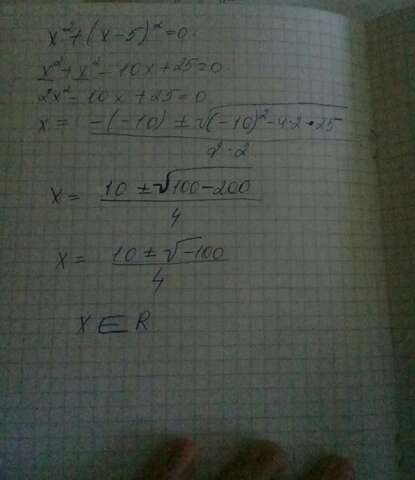 x²+(x-5)²=0
x²+x²-10x+25=0
2x²-10x+25=0
x = -(-10) ± √(-10)²-4·2·25
2·2
x = 10 ± √100-200
4
x = 10 ± √-100
4
x ∈ R